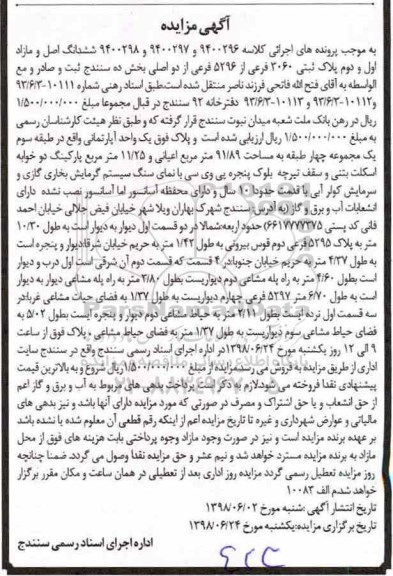 آگهی مزایده
به موجب پرونده های اجرائی کلاسه ۹۴۰۰۲۹۶ و ۹۴۰۰۲۹۷ و ۹۴۰۰۲۹۸ ششدانگ اصل و مازاد
اول و دوم پلاک ثبتی ۳۰۶۰ فرعی از ۵۲۹۶ فرعی از دو اصلی بخش ده سنندج ثبت و صادر و مع
الواسطه به آقای فتح الله فاتحی فرزند ناصر منتقل شده است.طبق اسناد رهنی شماره ۱۰۱۱۱-۹۳/۶/۳
و۱۰۱۱۲-۹۳/۶/۳ و ۱۰۱۱۳-۹۳/۶/۳ دفترخانه ۹۲ سنندج در قبال مجموعا مبلغ ۱/۵۰۰/۰۰۰/۰۰۰
ریال در رهن بانک ملت شعبه میدان نبوت سنندج قرار گرفته و طبق نظر هیئت کارشناسان رسمی
به مبلغ ۱/۵۰۰/۰۰۰/۰۰۰ ریال ارزیابی شده است و پلاک فوق یک واحد آپارتمانی واقع در طبقه سوم
یک مجموعه چهار طبقه به مساحت ۹۱/۸۹ متر مربع اعیانی و ۱۱/۲۵ متر مربع پارکینگ دو خوابه
اسکلت بتنی و سقف تیرچه بلوک پنجره پی وی سی با نمای سنگ سیستم گرمایش بخاری گازی و
سرمایش کولر آبی با قدمت حدود ۱۰ سال و دارای محفظه آسانسور اما آسانسور نصب نشده دارای
انشعابات آب و برق و گاز به آدرس:سنندج شهرک بهاران ویلا شهر خیابان فیض جلالی خیابان احمد
فانی کد پستی ۶۶۱۷۷۷۷۳۷۵) حدود اربعه:شمالا در دو قسمت اول دیوار به دیوار است به طول ۱۰/۳۰
متر به پلاک ۵۲۹۵ فرعی دوم قوس بیرونی به طول ۱/۴۲ متر به حریم خیابان شرقا:دیوار و پنجره است
به طول ۴/۳۷ متر به حریم خیابان جنوبا:در ۴ قسمت که قسمت دوم آن شرقی است اول درب و دیوار
است بطول ۴/۶۰ متر به راه پله مشاعی دوم دیواریست بطول ۳/۸۰ متر به راه پله مشاعی دیوار به دیوار
است به طول ۶/۷۰ متر ۵۲۹۷ فرعی چهارم دیواریست به طول ۱/۳۷ به فضای حیاط مشاعی غربا:در
سه قسمت اول نرده ایست بطول ۲/۱۱ متر به حیاط مشاعی دوم دیوار و پنجره ایست بطول ۵/۰۲ به
فضای حیاط مشاعی سوم دیواریست به طول ۱/۳۷ متر به فضای حیاط مشاعی ، پلاک فوق از ساعت
۹ الی ۱۲ روز یکشنبه مورخ ۱۳۹۸/۰۶/۲۴در اداره اجرای اسناد رسمی سنندج واقع در سنندج سایت
اداری از طریق مزایده به فروش می رسد.مزایده از مبلغ ۱/۵۰۰/۰۰۰/۰۰۰ ریال شروع و به بالاترین قیمت
پیشنهادی نقدا فروخته می شود.لازم به ذکر است پرداخت بدهی های مربوط به آب و برق و گاز اعم
از حق انشعاب و یا حق اشتراک و مصرف در صورتی که مورد مزایده دارای آنها باشد و نیز بدهی های
مالیاتی و عوارض شهرداری و غیره تا تاریخ مزایده اعم از اینکه رقم قطعی آن معلوم شده یا نشده باشد
بر عهده برنده مزایده است و نیز در صورت وجود مازاد وجوه پرداختی بابت هزینه های فوق از محل
مازاد به برنده مزایده مسترد خواهد شد و نیم عشر و حق مزایده نقدا وصول می گردد. ضمنا چنانچه
روز مزایده تعطیل رسمی گردد مزایده روز اداری بعد از تعطیلی در همان ساعت و مکان مقرر برگزار
خواهد شد.م الف ۱۰۰۸۳
تاریخ انتشار آگهی :شنبه مورخ ۱۳۹۸/۰۶/۰۲
تاریخ برگزاری مزایده:یکشنبه مورخ ۱۳۹۸/۰۶/۲۴
اداره اجرای اسناد رسمی سنندج